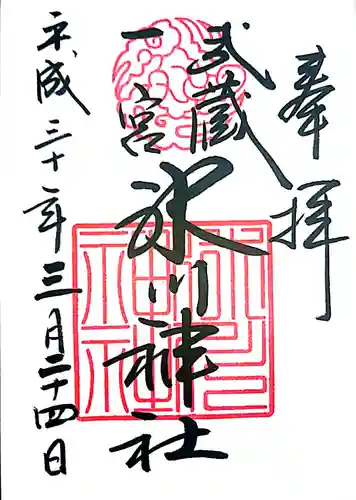 奉拝
武蔵
一宮
氷川神社
平成三十一年三月二十四日
氷川神社